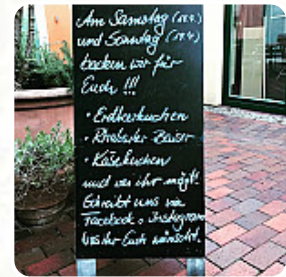 Am Samstag
und Sonntag
backen wir für
Euch !!!
• Erdbeerkuchen
• Rhabarber Baiser
• Käsekuchen
und was ihr mögt!
Schreibt uns via
Facebook o. Instagram
was ihr Euch wünscht.